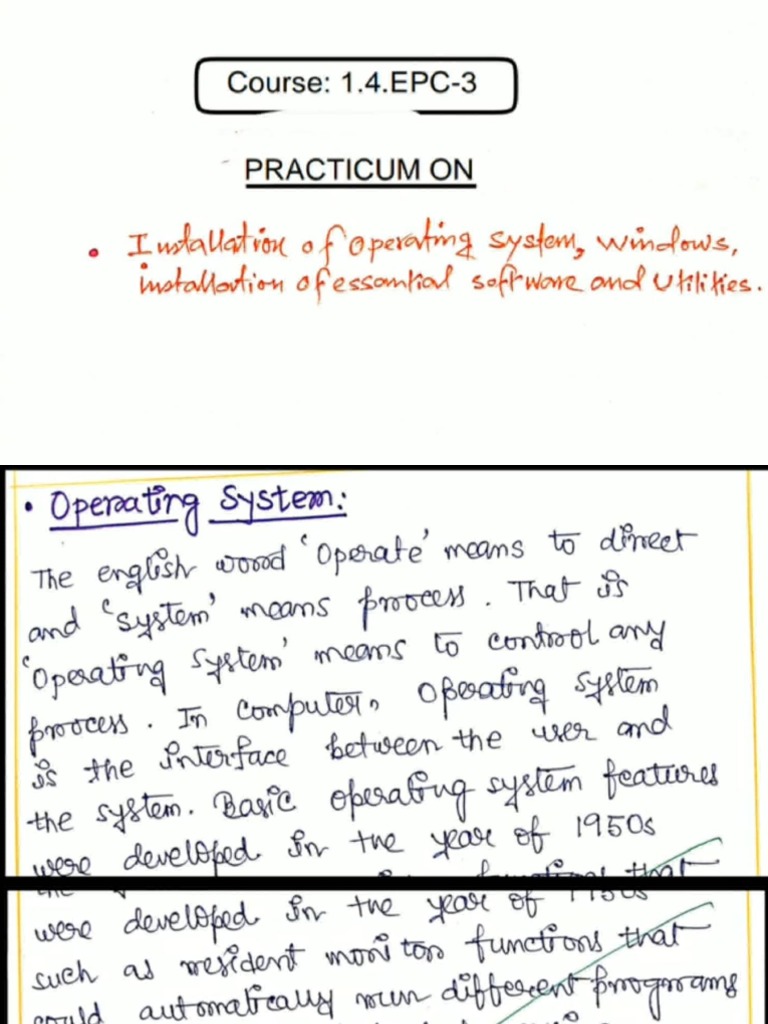 Course: 1.4.EPC-3
PRACTICUM ON
• Installation of operating system, windows,
installation of essential software and Utilities.
• Operating System:
The english word 'Operate' means to direct
and 'system' means process. That is
'Operating System' means to control any
process. In computer, operating system
is the interface between the user and
the system. Basic operating system features
were developed in the year of 1950s
that
were developed in the year of 1950s
such as resident monitor functions that
could automatically run different programs